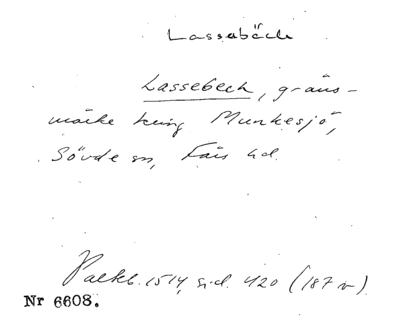 Lassebäck
Lassebech, gräns-
märke kring Munkesjö,
Sövde sn, Färs hd.
Palkb. 1514, sid. 420 (187 v).
Nr 6608.